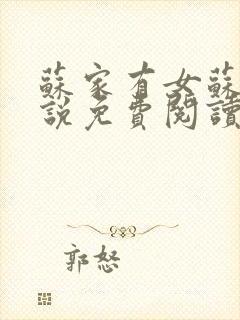 蘇家有女蘇
說免費閱讀
郭怒